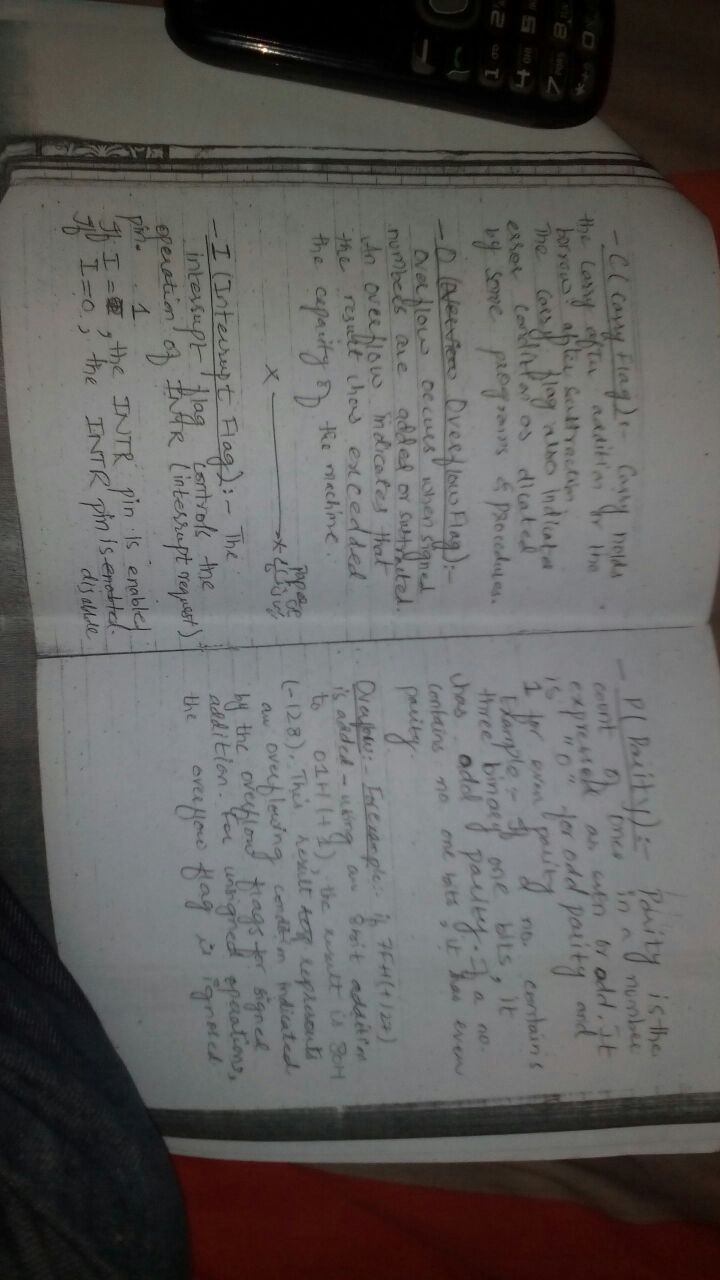 - C (Carry Flag) :- Carry holds
the carry after addition or the
borrow after subtraction.
The carry flag also indicates
error condition as dicated
by some programs & procedures.
- O ( Overflow Flag) :-
overflow occurs when signed
numbers are added or subtracted.
An overflow indicates that
the result has excedded
the capacity of the machine.
- I (Interrupt Flag) :- The
interrupt flag controls the
operation of INTR (interrupt request)
pin.
If I = 1, the INTR pin is enabled
If I = 0, the INTR pin is enabled.
disable
- P (Parity) :- Parity is the
count of ones in a number
expressed as even or odd. It
is "0" for odd parity and
1 for even parity
Example :- If a no. contains
three binary one bits, it
has odd parity. If a no.
contains no one bits, it has even
parity.
Overflow :- For example :- if 7FH (+127)
is added - using an 8 bit addition
to 01H (+1), the result is 80H
(-128). This result represents
an overflowing condition indicated
by the overflow flags for signed
addition. For unsigned operations,
the overflow flag is ignored.
* 0 8 5 2 7 4 1